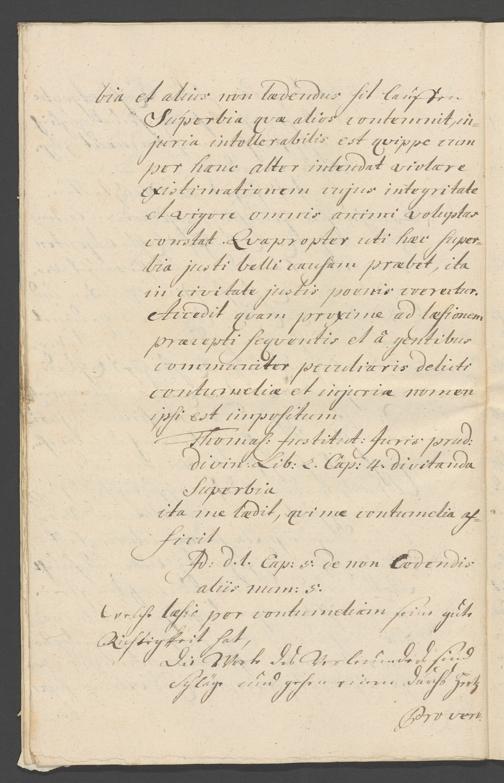 bia et alius non lædendus sit lauffen
Superbia quæ alios contemnit, in=
juria intollerabilis est quippe cum
per hanc alter intendat violare
existimationem cujus integritate
et vigore omnis animi voluptas
constat. Qvapropter uti hæc super=
bia justi belli causam præbet, ita
in civitate justis poenis coercetur.
Accedit quam proxime ad læsionem
præcepti sequentis et â gentibus
communiter peculiaris delicti
contumeliæ et injuriæ nomen
ipsi est impositum
Thomas: Institut: Juris prud:
divin: Lib: 2. Cap: 4. de vitanda
Superbia
ita me lædit, qui me contumelia af=
ficit
Id: d. l. Cap: 5. de non Lædendis
aliis num: 5.
welche læsio per contumeliam seine gute
Richtigkeit hat,
Die Worte des Verleumders sind
Schläge und gehen einem durchs Hertz
Proverb.